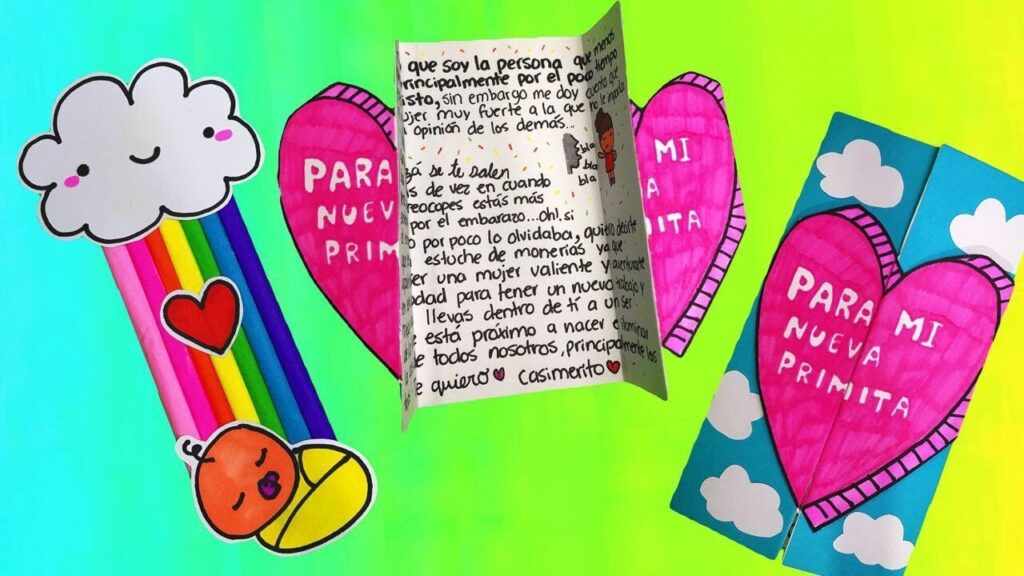 PARA
NUEV
PRIM
que soy la persona que menos
rincipalmente por el poco tiempo
isto, sin embargo me doy cuenta que
ujer muy fuerte a la que no le importa
opinión de los demás...
bla
bla
bla
zá se te salen
is de vez en cuando
reocopes estás más
por el embarazo...Oh!, si
o por poco lo olvidaba, quiero decirte
estuche de monerías ya que
er una mujer valiente y aventurarte
idad para tener un nuevo trabajo y
llevas dentro de tí a un ser
e está próximo a nacer e iluminar
e todos nosotros, principalmente los
e quiero Casimerito
MI
A
ITA
PARA MI
NUEVA
PRIMITA